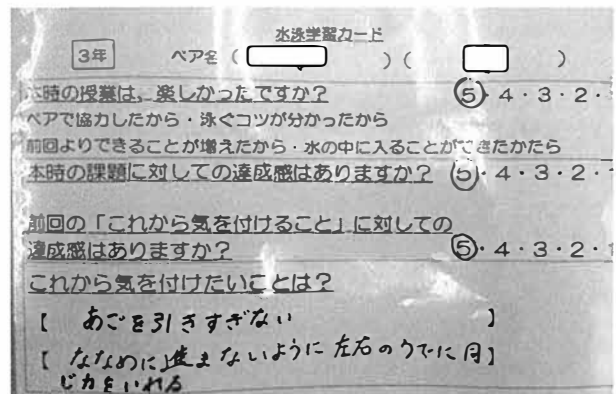 水泳学習カード
3年 ペア名 ( ) ( )
本時の授業は、楽しかったですか? 5・4・3・2・
ペアで協力したから・泳ぐコツが分かったから
前回よりできることが増えたから・水の中に入ることができたかたら
本時の課題に対しての達成感はありますか? 5・4・3・2・
前回の「これから気を付けること」に対しての
達成感はありますか? 5・4・3・2・
これから気を付けたいことは?
【 あごを引きすぎない 】
【 ななめに進まないように左右のうでに同】
じ力をいれる